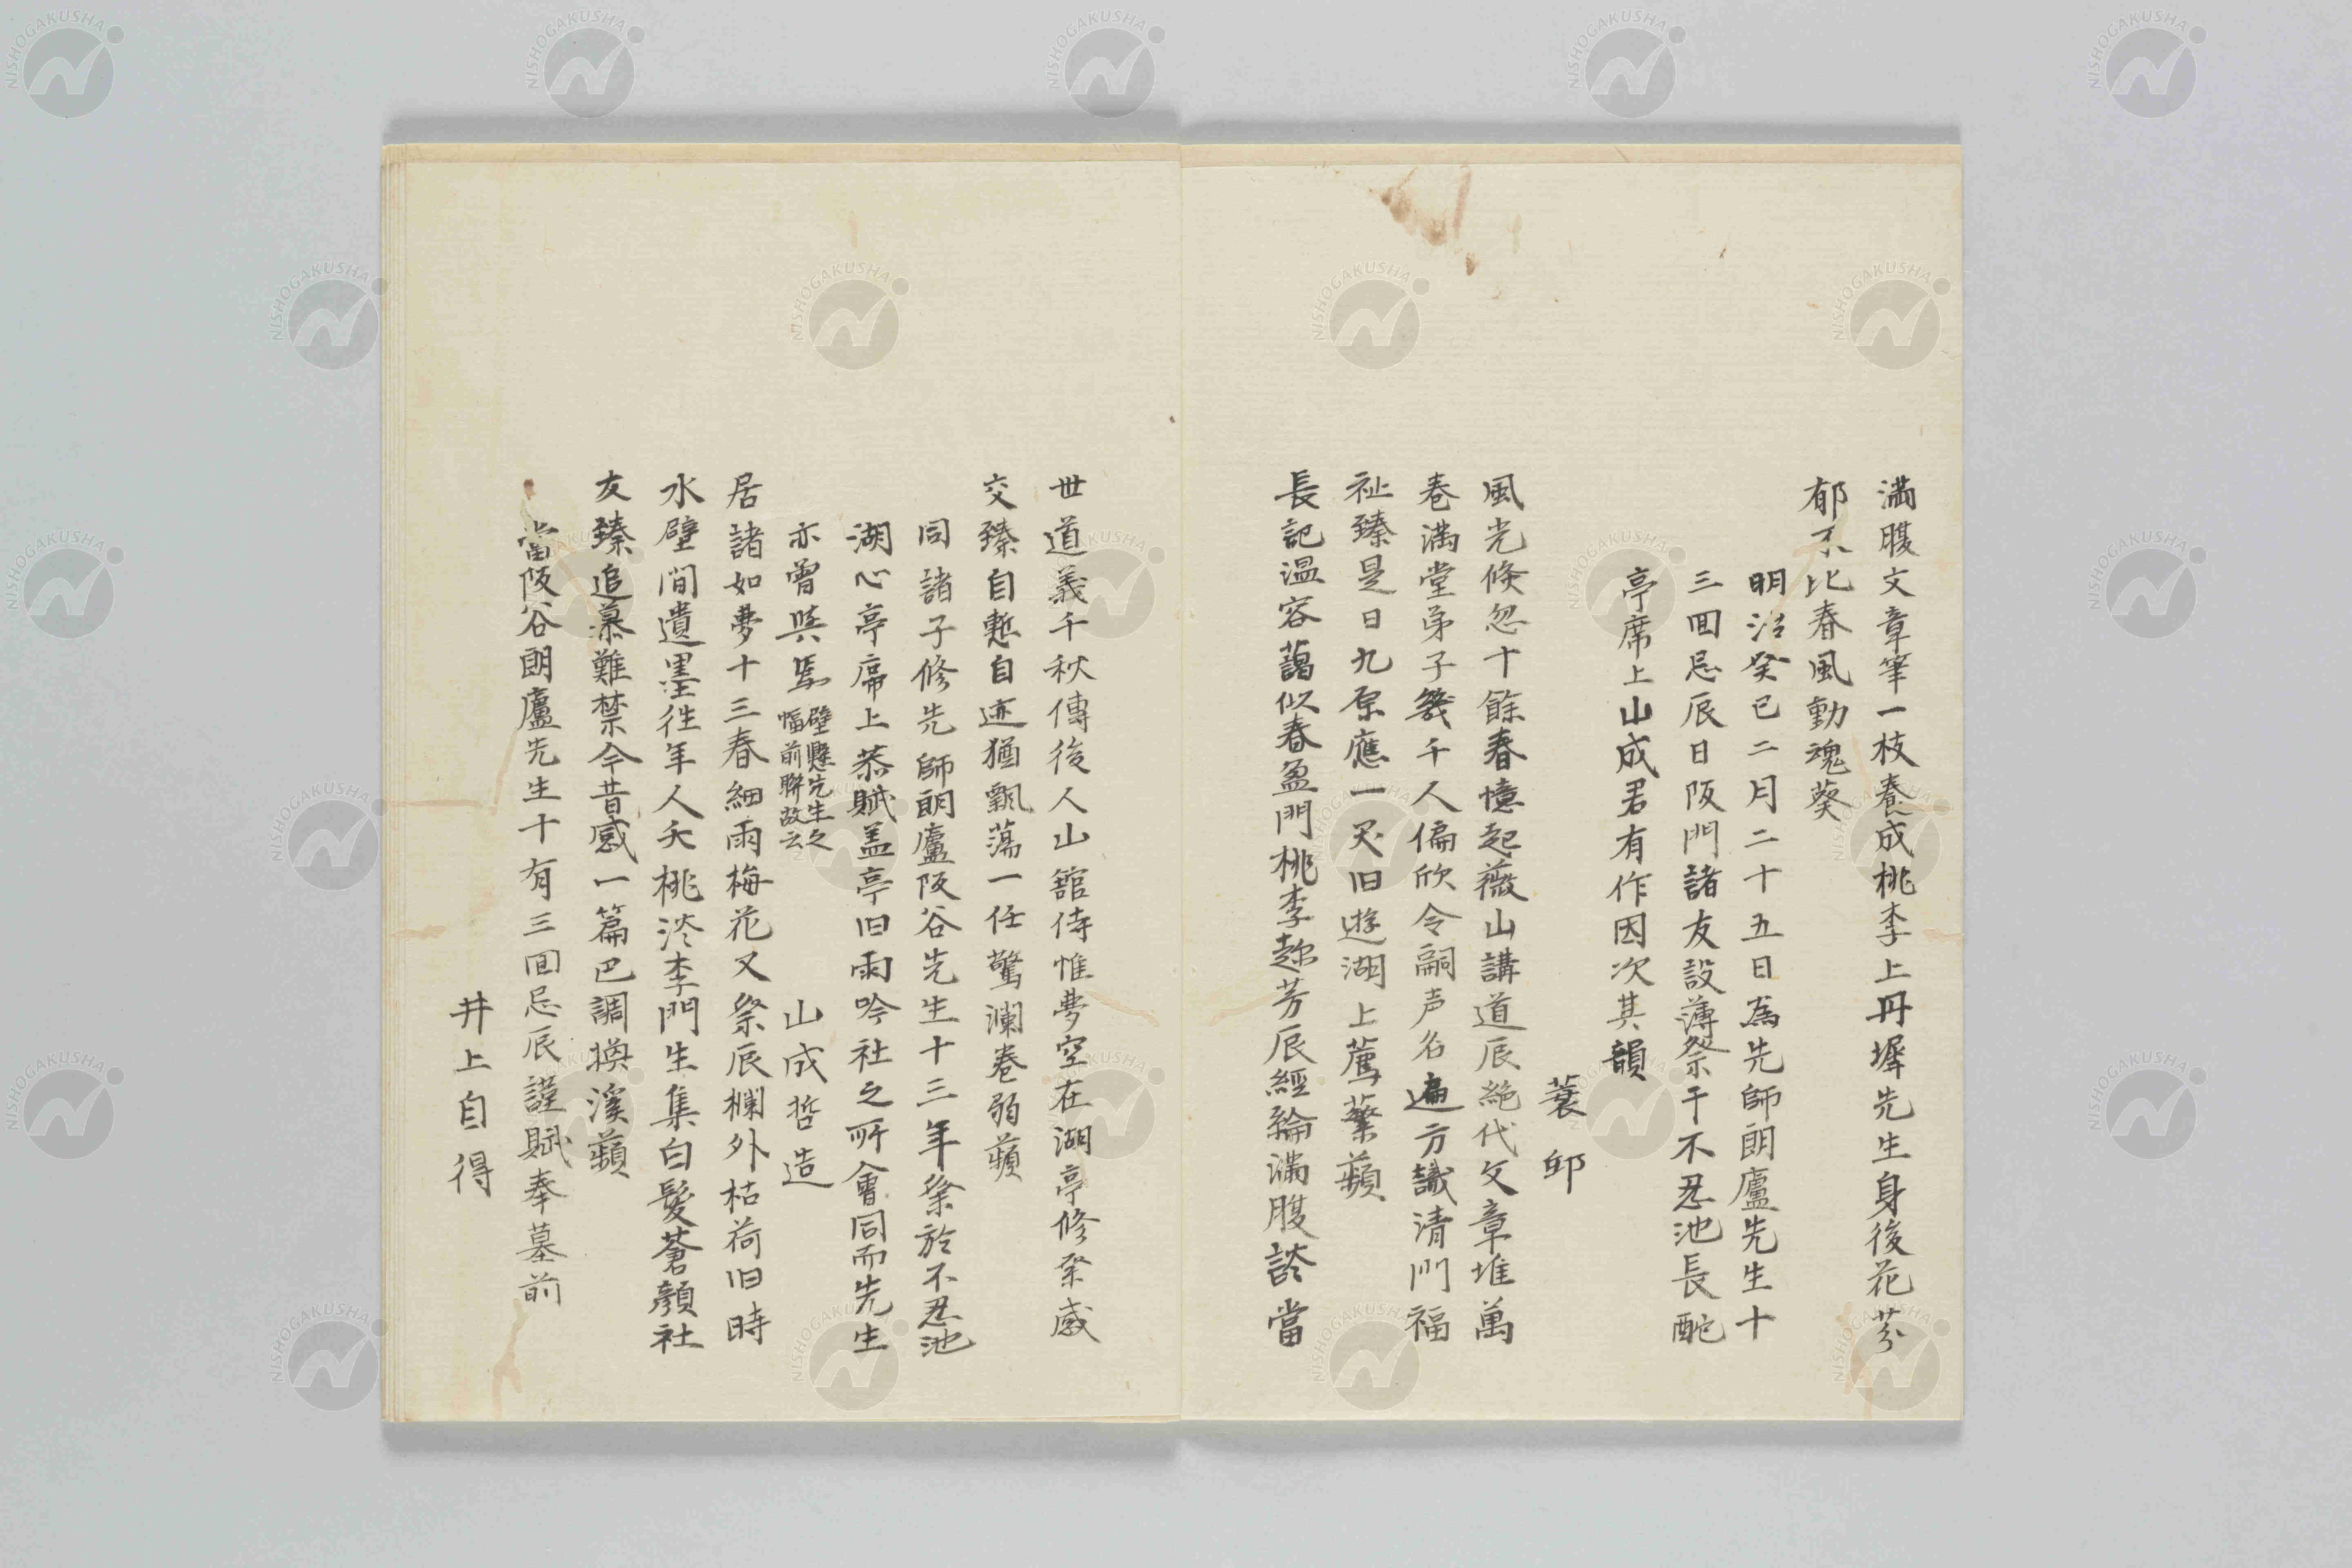 満腹文章筆一枝養成桃李上丹墀先生身後花芬
郁不比春風動魂葵
明治癸巳二月二十五日為先師朗廬先生十
三回忌辰日阪門諸友設薄祭于不忍池長酡
亭席上山成君有作因次其韻
蓑邱
風光倏忽十餘春憶起薇山講道辰絶代文章堆萬
巻満堂弟子幾千人偏欣令嗣声名遍方識清門福
祉臻是日九原應一笑旧遊湖上薦蘩蘋
長記温容藹似春盈門桃李趂芳辰經綸満腹談當
世道義千秋傳後人山舘侍惟夢空在湖亭修祭感
交臻自慙自迹猶飄蕩一任驚瀾巻弱蘋
同諸子修先師朗廬阪谷先生十三年祭於不忍池
湖心亭席上恭賦盖亭旧雨吟社之所會同而先生
亦曽與焉 壁懸先生之幅前聯故云 山成哲造
居諸如夢十三春細雨梅花又祭辰欄外枯荷旧時
水壁間遺墨往年人夭桃淡李門生集白髪蒼顔社
友臻追慕難禁今昔感一篇巴調換渓蘋
當阪谷朗廬先生十有三回忌辰謹賦奉墓前
井上自得
NISHOGAKUSHA